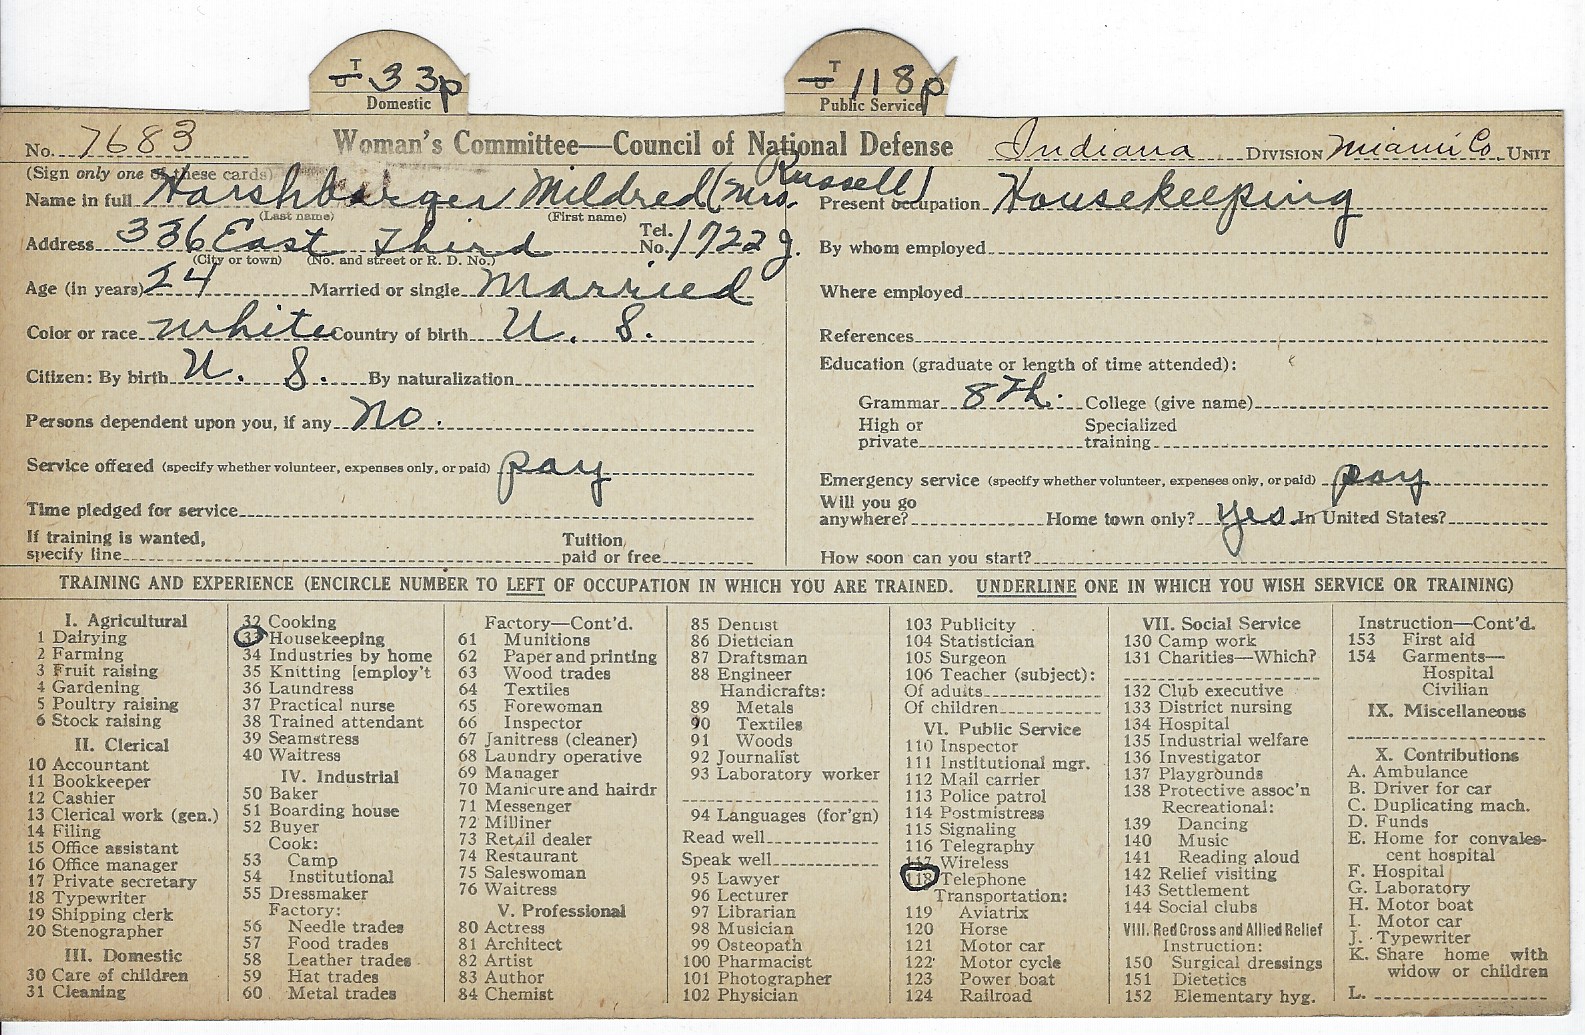 T 33p
Domestic
T 118p
Public Service
No. 7683 Woman's Committee—Council of National Defense Indiana DIVISION Miami Co. UNIT
(Sign only one of these cards)
Name in full Harshbarger Mildred (Mrs. Russell)
(Last name) (First name)
Address 336 East Third Tel. No. 1722 J.
(City or town) (No. and street or R. D. No.)
Age (in years) 24 Married or single Married
Color or race white Country of birth U. S.
Citizen: By birth U. S. By naturalization
Persons dependent upon you, if any No.
Service offered (specify whether volunteer, expenses only, or paid) pay
Time pledged for service
If training is wanted,
specify line Tuition paid or free
Present occupation Housekeeping
By whom employed
Where employed
References
Education (graduate or length of time attended):
Grammar 8Th. College (give name)
High or private Specialized training
Emergency service (specify whether volunteer, expenses only, or paid) pay
Will you go anywhere? Home town only? yes In United States?
How soon can you start?
TRAINING AND EXPERIENCE (ENCIRCLE NUMBER TO LEFT OF OCCUPATION IN WHICH YOU ARE TRAINED. UNDERLINE ONE IN WHICH YOU WISH SERVICE OR TRAINING)
I. Agricultural
1 Dairying
2 Farming
3 Fruit raising
4 Gardening
5 Poultry raising
6 Stock raising
II. Clerical
10 Accountant
11 Bookkeeper
12 Cashier
13 Clerical work (gen.)
14 Filing
15 Office assistant
16 Office manager
17 Private secretary
18 Typewriter
19 Shipping clerk
20 Stenographer
III. Domestic
30 Care of children
31 Cleaning
32 Cooking
33 Housekeeping
34 Industries by home
35 Knitting [employ't
36 Laundress
37 Practical nurse
38 Trained attendant
39 Seamstress
40 Waitress
IV. Industrial
50 Baker
51 Boarding house
52 Buyer
Cook:
53 Camp
54 Institutional
55 Dressmaker
Factory:
56 Needle trades
57 Food trades
58 Leather trades
59 Hat trades
60 Metal trades
Factory—Cont'd.
61 Munitions
62 Paper and printing
63 Wood trades
64 Textiles
65 Forewoman
66 Inspector
67 Janitress (cleaner)
68 Laundry operative
69 Manager
70 Manicure and hairdr
71 Messenger
72 Milliner
73 Retail dealer
74 Restaurant
75 Saleswoman
76 Waitress
V. Professional
80 Actress
81 Architect
82 Artist
83 Author
84 Chemist
85 Dentist
86 Dietician
87 Draftsman
88 Engineer
Handicrafts:
89 Metals
90 Textiles
91 Woods
92 Journalist
93 Laboratory worker
94 Languages (for'gn)
Read well
Speak well
95 Lawyer
96 Lecturer
97 Librarian
98 Musician
99 Osteopath
100 Pharmacist
101 Photographer
102 Physician
103 Publicity
104 Statistician
105 Surgeon
106 Teacher (subject):
Of adults
Of children
VI. Public Service
110 Inspector
111 Institutional mgr.
112 Mail carrier
113 Police patrol
114 Postmistress
115 Signaling
116 Telegraphy
117 Wireless
118 Telephone
Transportation:
119 Aviatrix
120 Horse
121 Motor car
122 Motor cycle
123 Power boat
124 Railroad
VII. Social Service
130 Camp work
131 Charities—Which?
132 Club executive
133 District nursing
134 Hospital
135 Industrial welfare
136 Investigator
137 Playgrounds
138 Protective assoc'n
Recreational:
139 Dancing
140 Music
141 Reading aloud
142 Relief visiting
143 Settlement
144 Social clubs
VIII. Red Cross and Allied Relief
Instruction:
150 Surgical dressings
151 Dietetics
152 Elementary hyg.
Instruction—Cont'd.
153 First aid
154 Garments—
Hospital
Civilian
IX. Miscellaneous
X. Contributions
A. Ambulance
B. Driver for car
C. Duplicating mach.
D. Funds
E. Home for convales-
cent hospital
F. Hospital
G. Laboratory
H. Motor boat
I. Motor car
J. Typewriter
K. Share home with
widow or children
L.